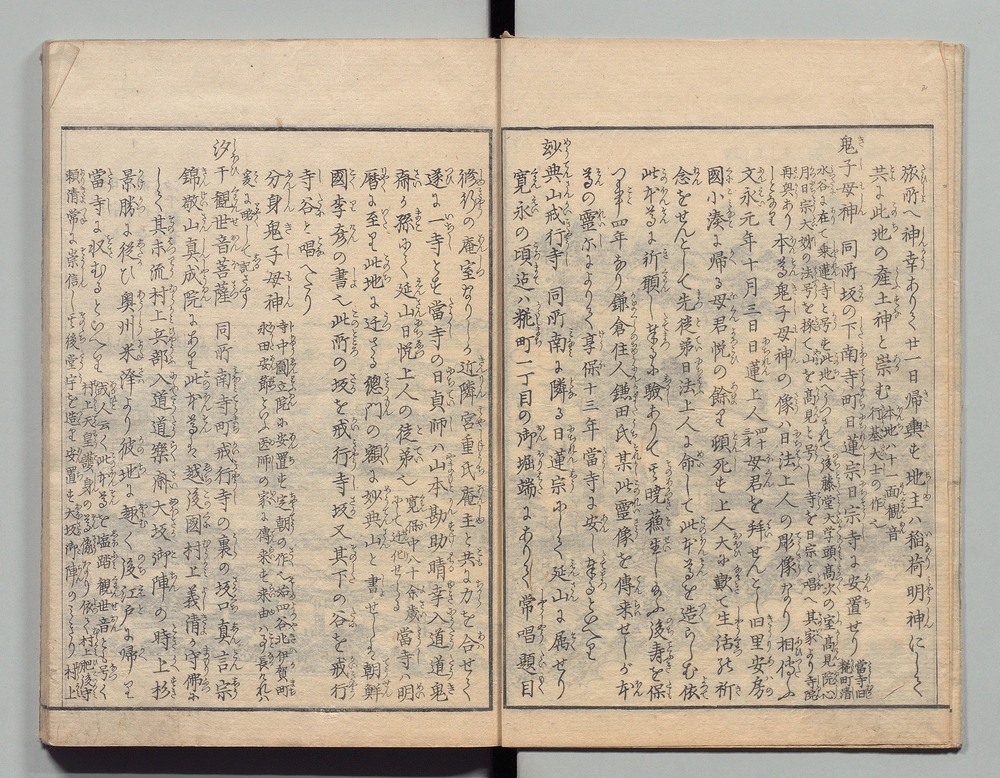 旅所へ神幸ありて廿一日帰輿も地主ハ稲荷明神にして
共に此地の産土神と崇む 本地ハ十一面観音 行基大士の作也
鬼子母神 同所坂の下南寺町日蓮宗日宗寺に安置せり 當寺旧糀町清
水谷に在て乗蓮寺と号
月日宗大
再興あり 本尊鬼子母神の像ハ日法上人の彫像なり相伝ふ
文永元年十月三日日蓮上人 四十三才 母君を拜せんとし旧里安房
國小湊に帰る母君悦の餘り頓死も上人大に歎て生活の祈
念をせんとして先徒弟日法上人に命して此本尊を造らしむ依
此本尊に祈願し奉るに驗ありて其暁蘓生しのふ後寿を保
つ事四年なり鎌倉住人鎌田氏某此靈像を傳来せしが本
尊の靈示によりて享保十三年當寺に安し奉るといへり
妙典山戒行寺 同所南に隣る日蓮宗にして延山に属せり
寛永の頃迄ハ糀町一丁目の御堀端にありて常唱題目
修行の庵室なりしを近隣宮重氏庵主と共に力を合せて
遂に一寺とも當寺の日貞師ハ山本勘助晴幸入道道鬼
齋の孫にて延山日悦上人の徒弟也 當寺ハ明
暦に至り此地に迁さる總門の額に妙典山と書せしハ朝鮮
國李彦の書也此所の坂を戒行寺坂又其下の谷を戒行
寺谷と唱へたり
分身鬼子母神 寺中圓立院に安置も定朝の作也 四谷北伊賀町
爰に略して記さす
汐干観世音菩薩 同所南寺町戒行寺の裏の坂口真言宗
錦敬山真成院にあり此本尊ハ越後國村上義清が守佛に
して其末流村上兵部入道道樂齋大坂御陣の時上杉
景勝に従ひ奥州米澤より彼地に趣く後江戸に帰り
當寺に収むるといへり 或人云く此本尊を塩踏観世音とも号く 村上天皇護身の
頼清常に崇信し其後堂宇を造り安置も大坂御陣の